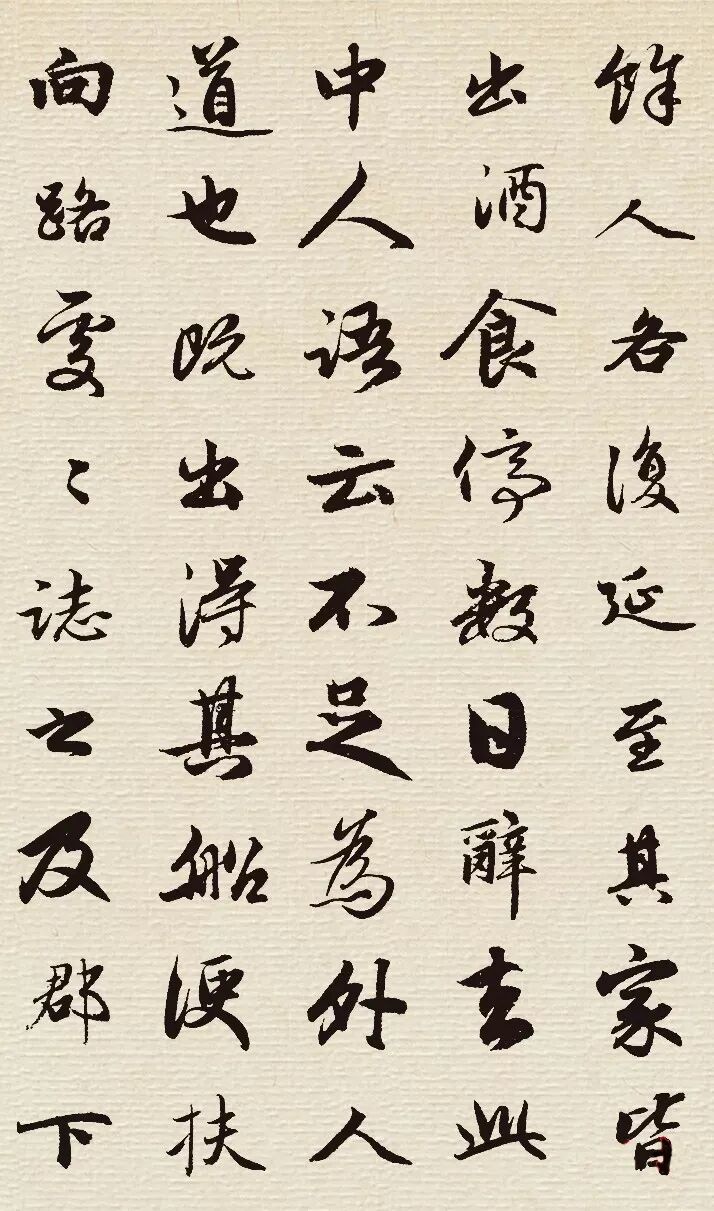 餘人各復延至其家皆
出酒食停數日辭去此
中人語云不足為外人
道也既出得其船便扶
向路處〻誌之及郡下